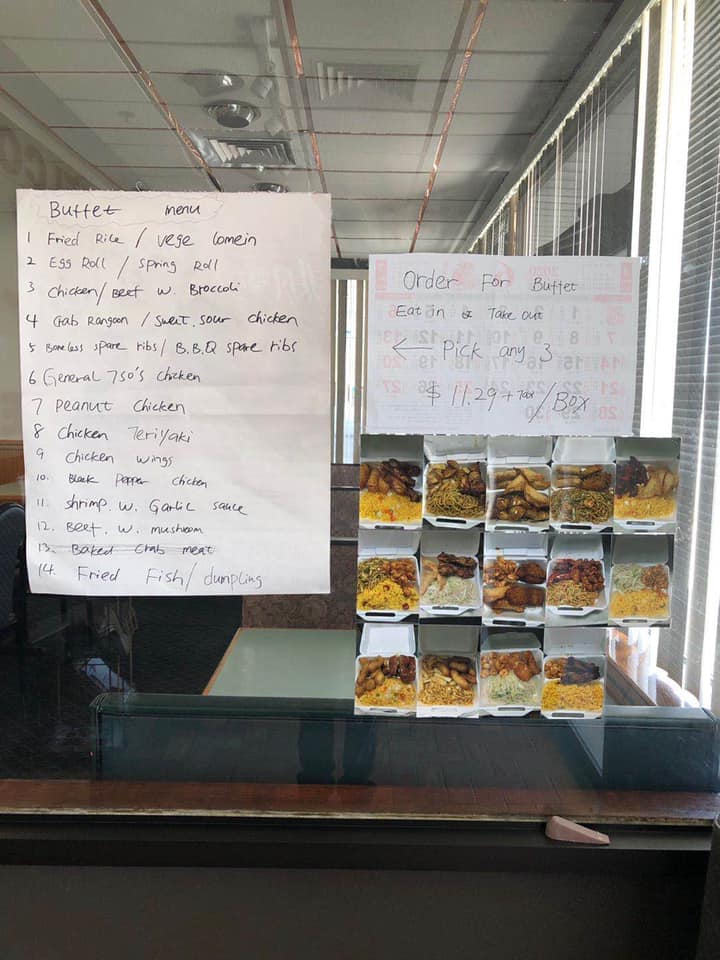 Buffet menu
1 Fried Rice / vege lomein
2 Egg Roll / spring Roll
3 Chicken/ Beef w. Broccoli
4 Crab Rangoon / sweet.sour chicken
5 Boneless spare ribs / B.B.Q spare ribs
6 General 7so's chicken
7 peanut chicken
8 Chicken Teriyaki
9 Chicken wings
10. Black Pepper chicken
11. shrimp. w. Garlic sauce
12. Beef. w. mushroom
13. Baked Crab meat
14. Fried Fish / dumpling
Order For Buffet
Eat in or Take out
← Pick any 3
$ 11.29 + Tax / Box
2020